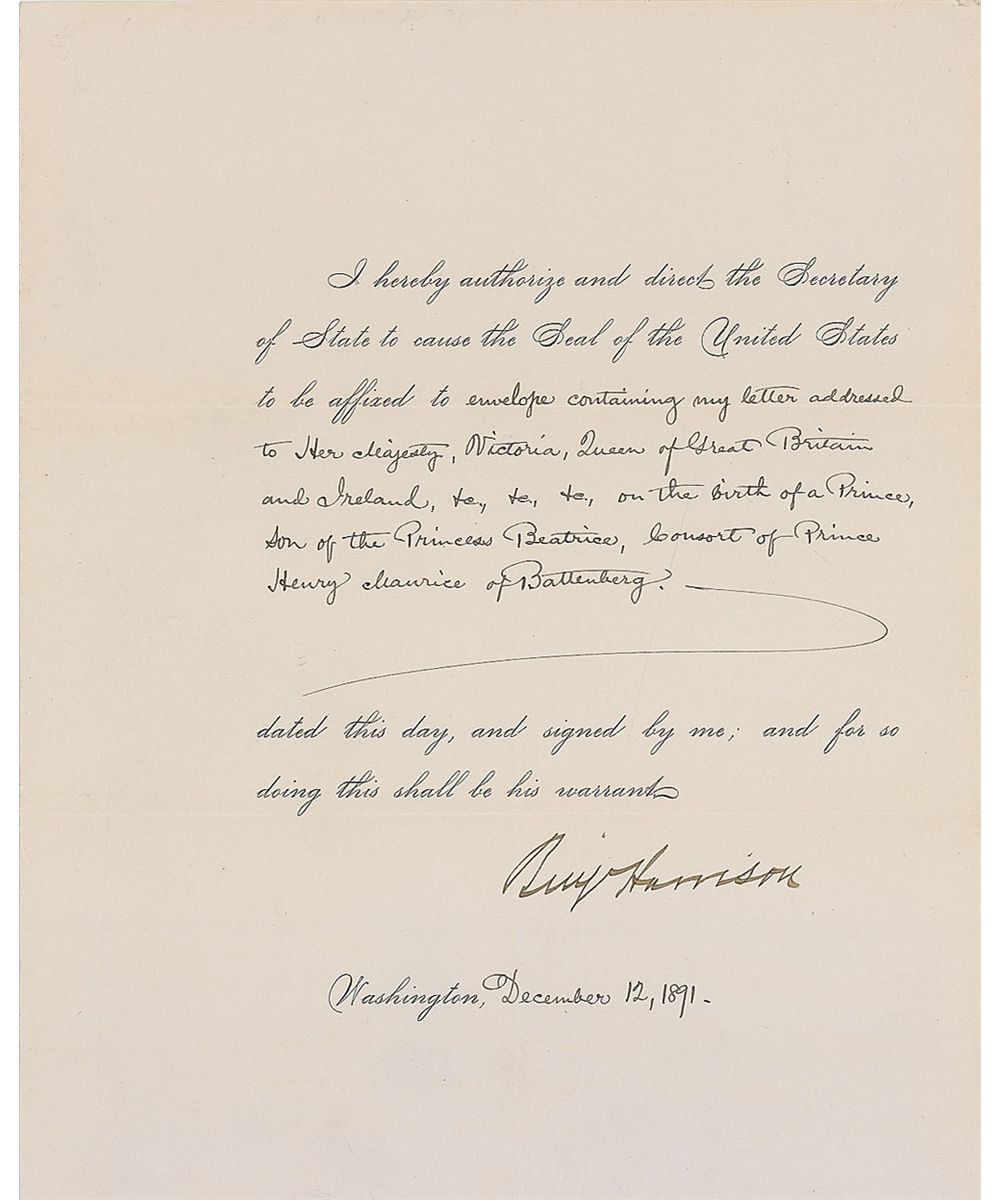 I hereby authorize and direct the Secretary
of State to cause the Seal of the United States
to be affixed to envelope containing my letter addressed
to Her Majesty, Victoria, Queen of Great Britain
and Ireland, &c., &c., &c., on the birth of a Prince,
son of the Princess Beatrice, Consort of Prince
Henry Maurice of Battenberg.
dated this day, and signed by me; and for so
doing this shall be his warrant
Benj Harrison
Washington, December 12, 1891.